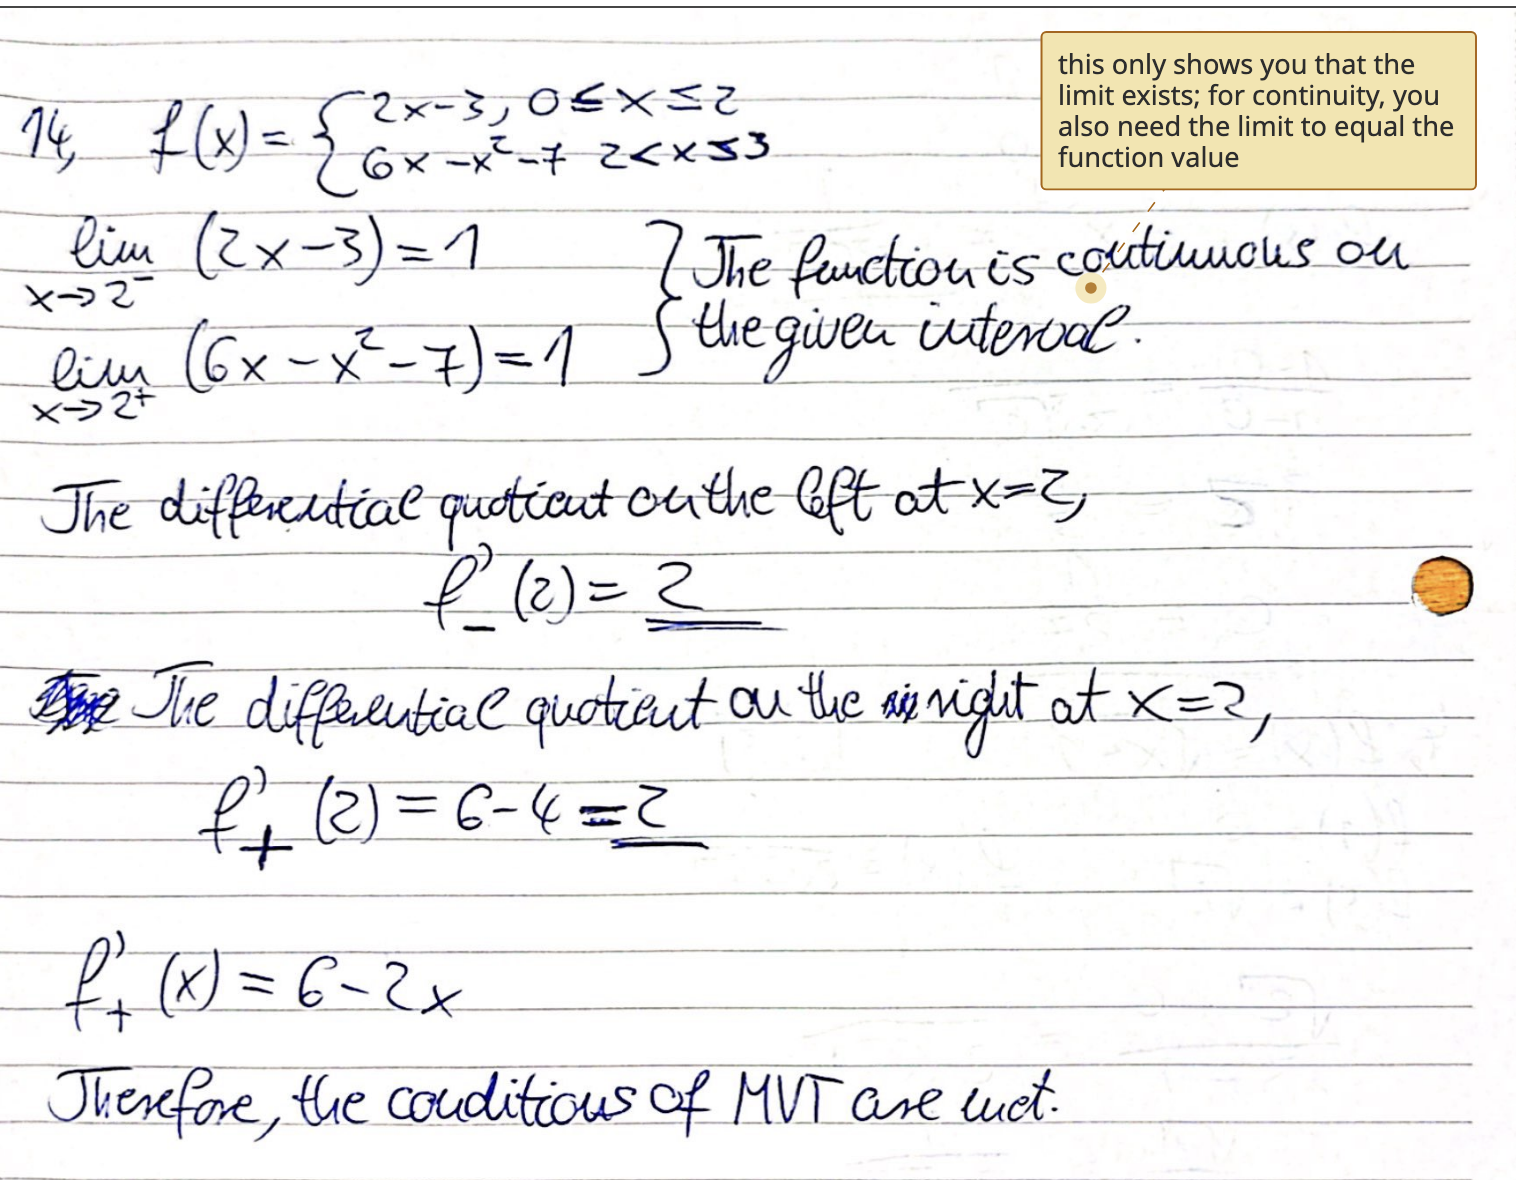 this only shows you that the
limit exists; for continuity, you
also need the limit to equal the
function value
14, f(x) = { 2x-3, 0 ≤ x ≤ 2
6x - x² - 7 2 < x ≤ 3
lim x→2⁻ (2x-3) = 1
lim x→2⁺ (6x - x² - 7) = 1
} The function is continuous on
the given interval.
The differential quotient on the left at x=2,
f'₋(2) = 2
The differential quotient on the right at x=2,
f'₊(2) = 6-4 = 2
f'₊(x) = 6-2x
Therefore, the conditions of MVT are met.